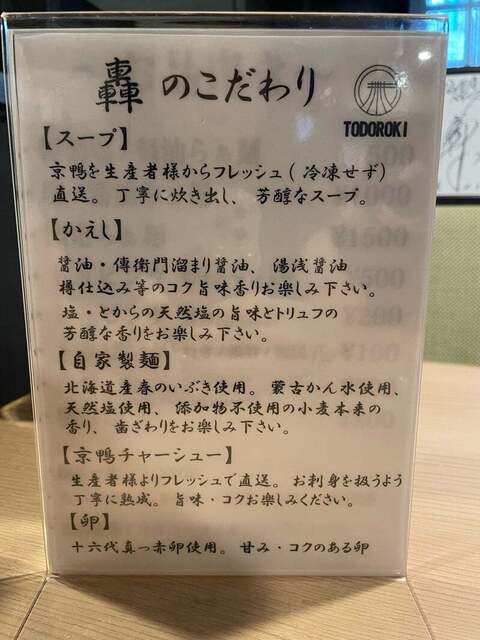 轟のこだわり
TODOROKI
【スープ】
京鴨を生産者様からフレッシュ(冷凍せず)
直送。丁寧に炊き出し、芳醇なスープ。
【かえし】
醤油・傳衛門溜まり醤油、湯浅醤油
樽仕込み等のコク旨味香りお楽しみ下さい。
塩・とからの天然塩の旨味とトリュフの
芳醇な香りをお楽しみ下さい。
【自家製麺】
北海道産春のいぶき使用。蒙古かん水使用、
天然塩使用、添加物不使用の小麦本来の
香り、歯ざわりをお楽しみ下さい。
【京鴨チャーシュー】
生産者様よりフレッシュで直送。お刺身を扱うよう
丁寧に熟成。旨味・コクお楽しみください。
【卵】
十六代真っ赤卵使用。甘み・コクのある卵